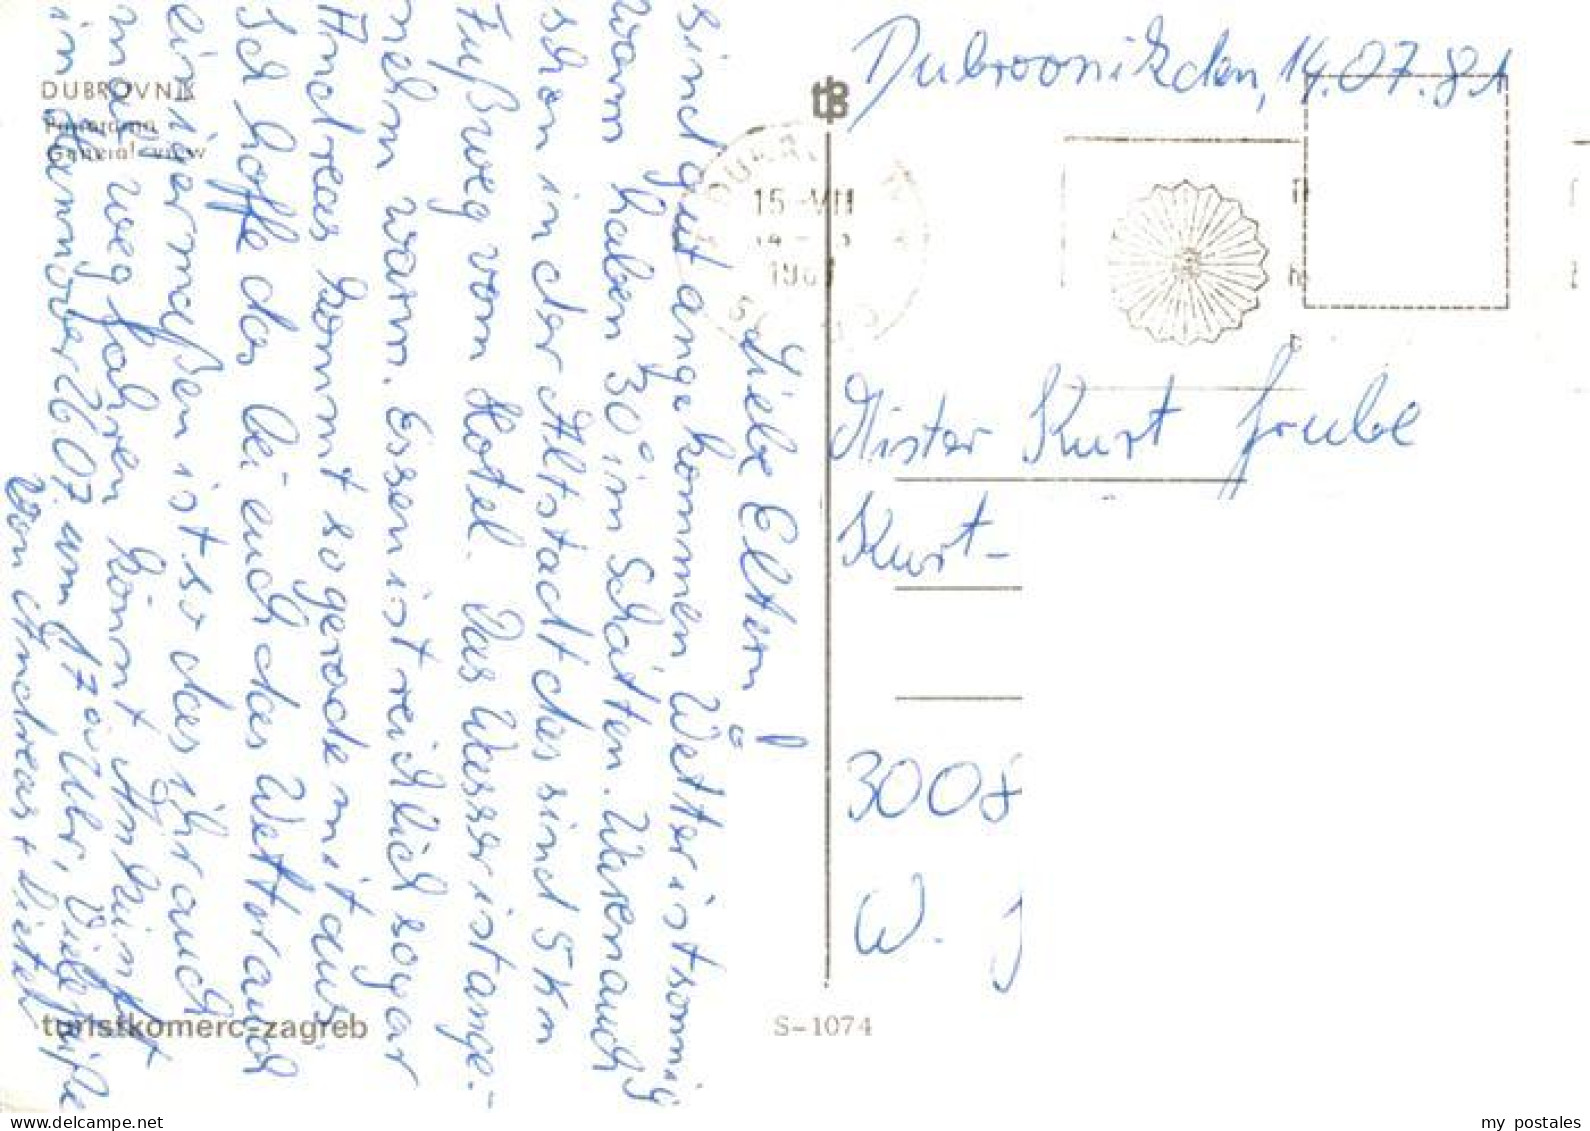 DUBROVNIK
Panorama
General view
Dubrovnik den, 14.07.81
15 VII
198
Liebe Eltern!
sind gut angekommen Wetter ist sonnig
warm haben 30° im Schatten. Waren auch
schon in der Altstadt des sind 5 Km
Fußweg vom Hotel. Das Wasser ist ange-
nehm warm. Essen ist reichlich sogar
Andreas kommt so gerade mit aus
Ich hoffe das bei euch das Wetter auch
einigermaßen ist. so das ihr auch
mal wegfahren könnt Ankunft
in Hannover 26 07. um 17 Uhr, Viele Grüße
von Andreas + Dieter
Mister Kurt Grube
Kurt-
3008
W.
turistkomerc-zagreb
S-1074
my postales